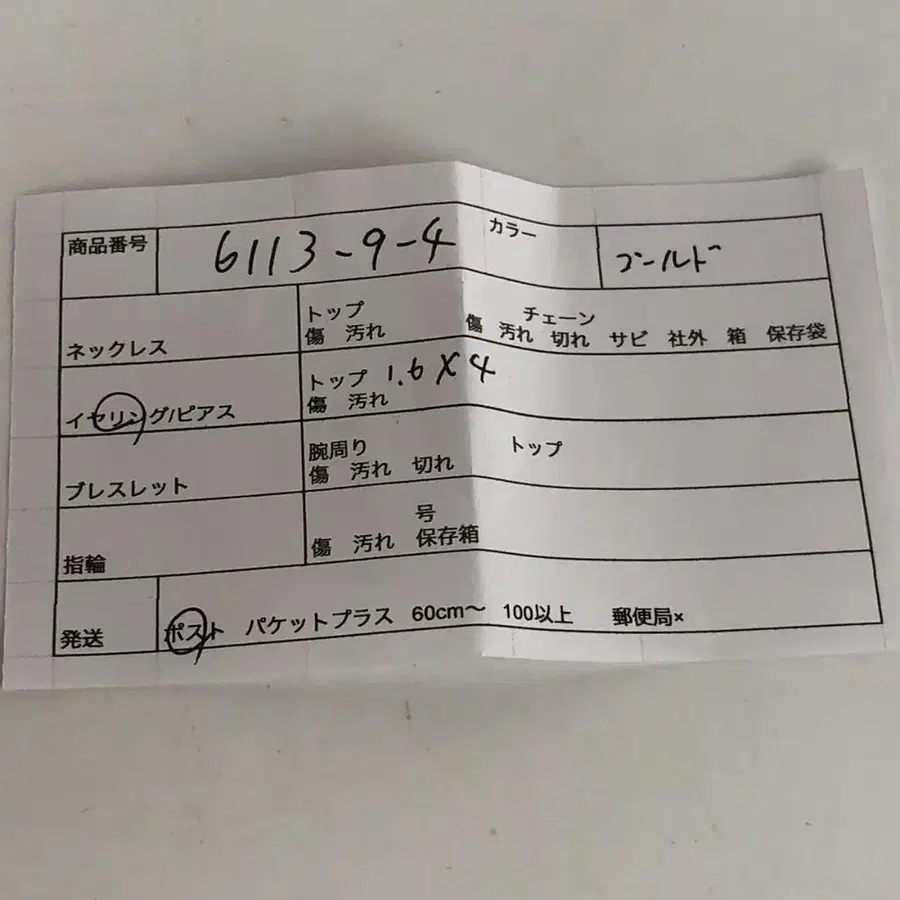 商品番号 6113-9-4 カラー ゴールド
ネックレス トップ チェーン
傷 汚れ 傷 汚れ 切れ サビ 社外 箱 保存袋
イヤリング/ピアス トップ 1.6X4
傷 汚れ
ブレスレット 腕周り トップ
傷 汚れ 切れ
指輪 号
傷 汚れ 保存箱
発送 ポスト パケットプラス 60cm〜 100以上 郵便局×